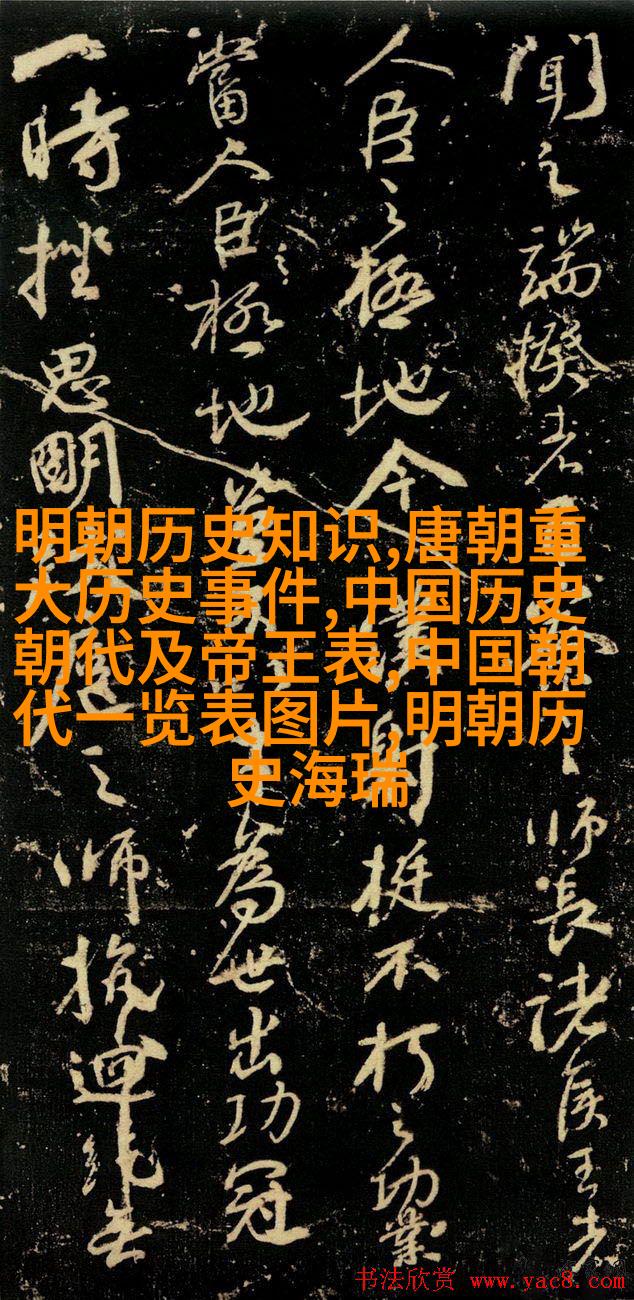 聞之端揆者之師長諸侯王者
人臣之極地今僕射挺不朽之功業
當人臣之極地豈為世出功冠
一時挫思明之師抗迴紇無
明朝历史知识,唐朝重
大历史事件,中国历史
朝代及帝王表,中国朝
代一览表图片,明朝历
史海瑞
书法欣赏 www.yac8.com